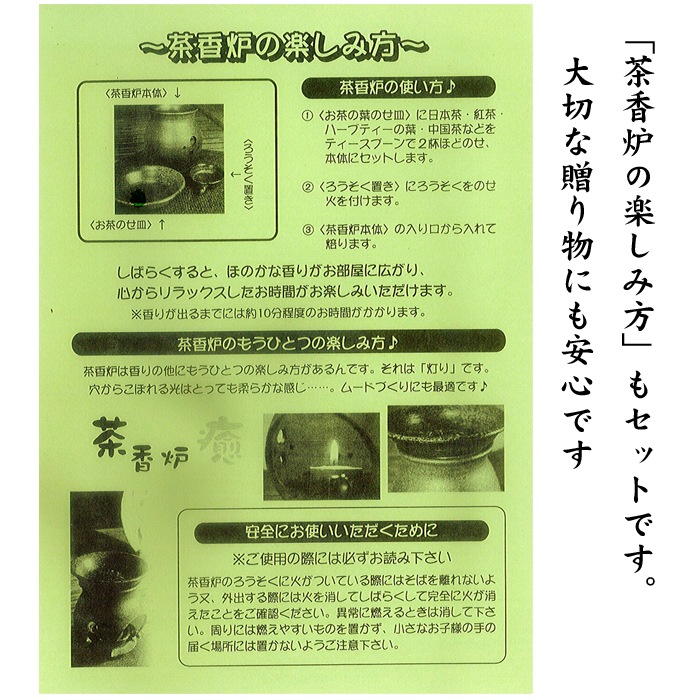 ～茶香炉の楽しみ方～
〈茶香炉本体〉↓
〈ろうそく置き〉
↑
〈お茶のせ皿〉↑
茶香炉の使い方♪
①〈お茶の葉のせ皿〉に日本茶・紅茶・
ハーブティーの葉・中国茶などを
ティースプーンで２杯ほどのせ、
本体にセットします。
②〈ろうそく置き〉にろうそくをのせ
火を付けます。
③〈茶香炉本体〉の入り口から入れて
焙ります。
しばらくすると、ほのかな香りがお部屋に広がり、
心からリラックスしたお時間がお楽しみいただけます。
※香りが出るまでには約10分程度のお時間がかかります。
茶香炉のもうひとつの楽しみ方♪
茶香炉は香りの他にもうひとつの楽しみ方があるんです。それは「灯り」です。
穴からこぼれる光はとっても柔らかな感じ……。ムードづくりにも最適です♪
茶香炉 癒
安全にお使いいただくために
※ご使用の際には必ずお読み下さい
茶香炉のろうそくに火がついている際にはそばを離れないよ
う又、外出する際には火を消してしばらくして完全に火が消
えたことをご確認ください。異常に燃えるときは消して下さ
い。周りには燃えやすいものを置かず、小さなお子様の手の
届く場所には置かないようご注意下さい。
「茶香炉の楽しみ方」もセットです。
大切な贈り物にも安心です